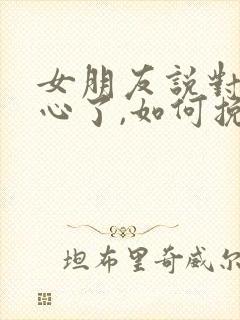 女朋友說對
心了,如何挽
坦布里奇威尔